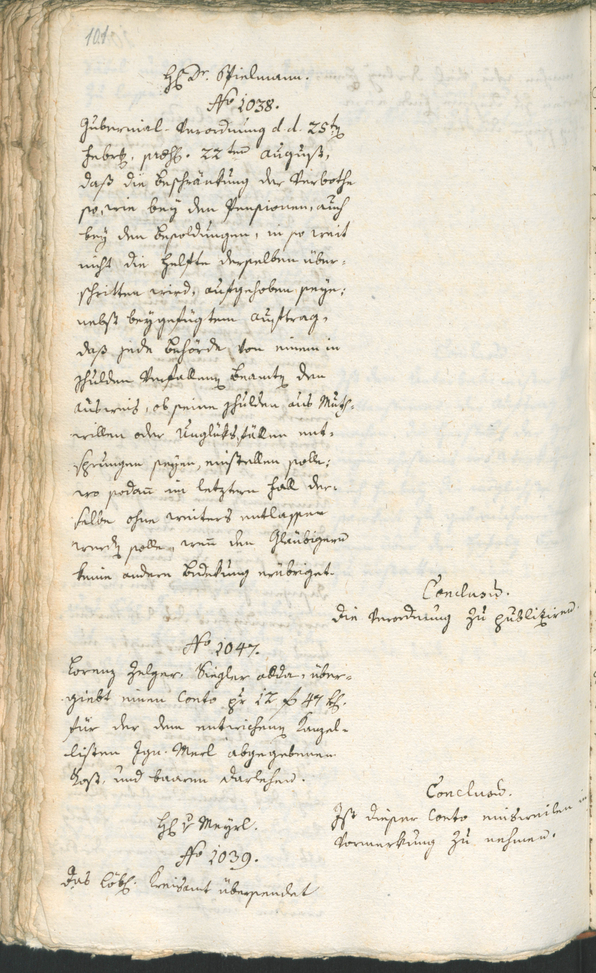 101
H. Dr. Spielmann.
No 1038.
Gubernial-Verordnung d. d. 25ten
Febry. praes. 22ten August,
daß die Beschränkung der Verbothe
so, wie bey den Pensionen, auch
bey den Besoldungen, in so weit
nicht die Helfte derselben über-
schritten wird, aufgehoben seye;
nebst beygefügtem Auftrag,
daß jede Behörde, von einem in
Schulden verfallenen Beamten den
Ausweis, ob seine Schulden aus Muth-
willen oder Unglüksfällen ent-
sprungen seyen, einstellen solle;
wo sodann im letztern Fall der-
selbe ohne weiters entlassen
werden solle, wenn den Glaubigern
keine andere Bedekung erübriget.
Conclusum.
Die Verordnung zu publiziren.
No 1047.
Lorenz Zelger, Siegler allda, über-
giebt einen Conto pr 12 f 47 kr.
für der dem entwichenen Kanzel-
listen Ign. Merl abgegebenen
Kost und baaren Darlehen.
Conclusum.
Ist dieser Conto einsweilen in
Vormerkung zu nehmen.
H. v. Meyrl.
No 1039.
Das löbl. Kreisamt übersendet